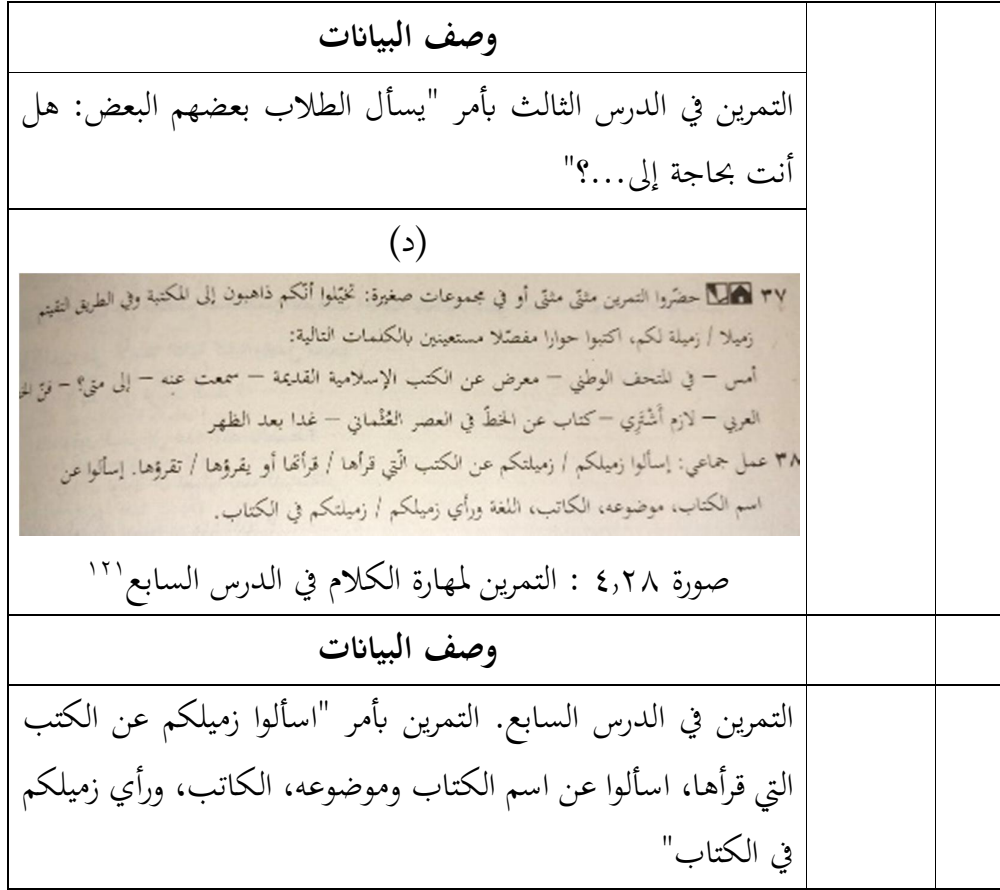 وصف البيانات
التمرين في الدرس الثالث بأمر "يسأل الطلاب بعضهم البعض: هل
أنت بحاجة إلى...؟"
(د)
٣٧ حضّروا التمرين مثنّى مثنّى أو في مجموعات صغيرة: تخيّلوا أنّكم ذاهبون إلى المكتبة وفي الطريق التقيتم
زميلا / زميلة لكم، اكتبوا حوارا مفصّلا مستعينين بالكلمات التالية:
أمس – في المتحف الوطني – معرض عن الكتب الإسلامية القديمة – سمعت عنه – إلى متى؟ – فنّ
العربي – لازم أَشْتَرِي – كتاب عن الخطّ في العصر العُثْماني – غدا بعد الظهر
٣٨ عمل جماعي: إسألوا زميلكم / زميلتكم عن الكتب الّتي قرأها / قرأتها أو يقرؤها / تقرؤها. إسألوا عن
اسم الكتاب، موضوعه، الكاتب، اللغة ورأي زميلكم / زميلتكم في الكتاب.
صورة ٤,٢٨ : التمرين لمهارة الكلام في الدرس السابع١٢١
وصف البيانات
التمرين في الدرس السابع. التمرين بأمر "اسألوا زميلكم عن الكتب
التي قرأها، اسألوا عن اسم الكتاب وموضوعه، الكاتب، ورأي زميلكم
في الكتاب"